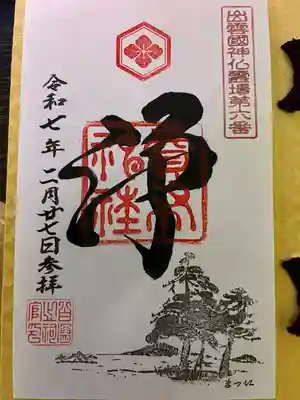 出雲國神仏霊場第六番
浄
賣布
神社
令和七年 二月廿七日参拝
まつえ